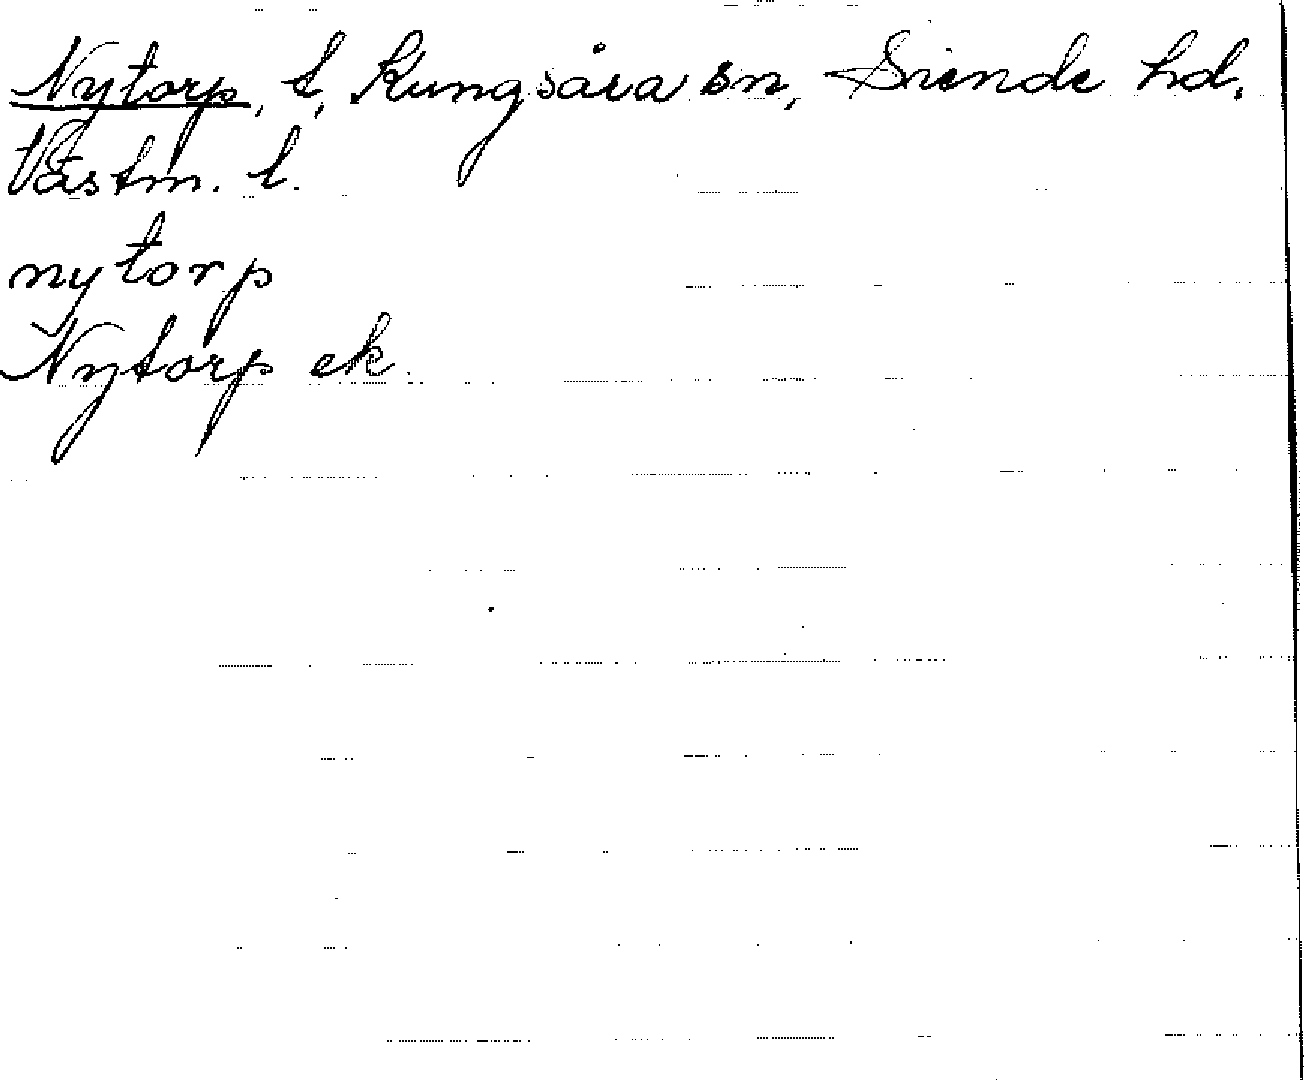 Nytorp, t, Kungsåra sn, Siende hd,
Västm. l.
nytorp
Nytorp ek.